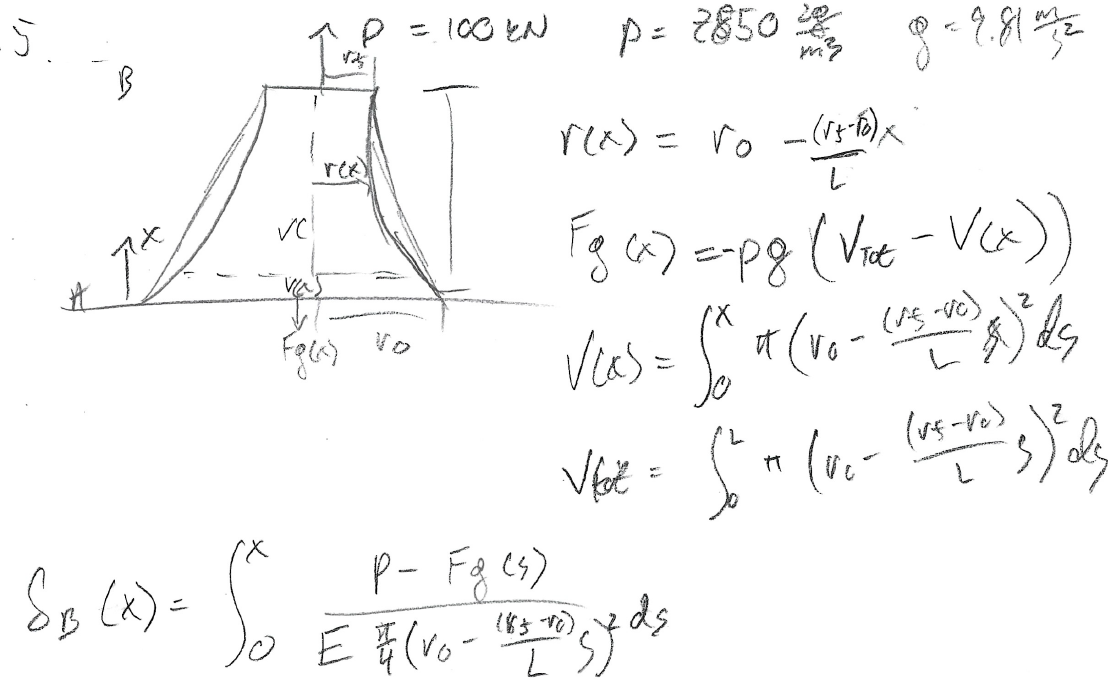 5.
P = 100 kN
ρ = 2850 kg/m³
g = 9.81 m/s²
B
r_f
r(x) = r_0 - (r_f-r_0)/L x
r(x)
F_g(x) = -ρg (V_Tot - V(x))
x
A
F_g(x)
r_0
V(x) = ∫_0^x π (r_0 - (r_f-r_0)/L s)² ds
V_tot = ∫_0^L π (r_0 - (r_f-r_0)/L s)² ds
δ_B (x) = ∫_0^x (P - F_g(s))/(E π/4 (r_0 - (r_f-r_0)/L s)²) ds